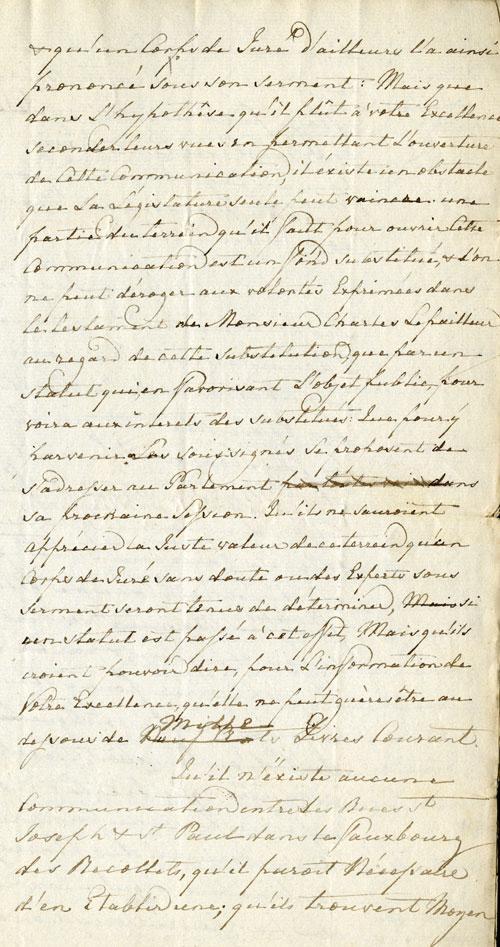 & qu'un Corps de Juré d'ailleurs l'a ainsi
prononcé sous son serment : Mais que
dans L'hypothêse qu'il plût à votre Excellence
seconder leurs vues en permettant L'ouverture
de Cette Communication, il éxiste un obstacle
que La Législature seule peut vaincre une
partie du terrein qu'il faut pour ouvrir Cette
Communication est un fond substitué, & L'on
ne peut déroger aux volontés Exprimées dans
le testament de Monsieur Charles Lepailleur
au regard de cette substitution, que par un
statut qui en favorisant L'objet public, pour
voira aux intérets des substitués. Que pour y
parvenir Les soussignés se proposent de
s'adresser au Parlement dans
sa prochaine Session. Qu'ils ne sauroient
apprécier La Juste valeur de ce terrein qu'un
Corps de Juré sans doute ou des Experts sous
serment seront tenus de déterminer, Mais si
un statut est passé à cet effet, Mais qu'ils
croient pouvoir dire, pour L'information de
Votre Excellence, qu'elle ne peut guères être au
dessous de Mille Livres Courant.
Qu'il n'éxiste aucune
Communication entre Les Rues St
Joseph & St Paul dans le fauxbourg
des Recollets, qu'il paroit Nécessaire
d'en Etablir une; qu'ils trouvent Moyen